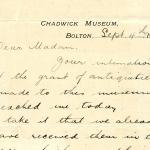 CHADWICK MUSEUM,
BOLTON. Sept 4th
Dear Madam,
Your intimation
of the grant of antiquities
made to this museum
reached me today
I take it that we already
have received them in